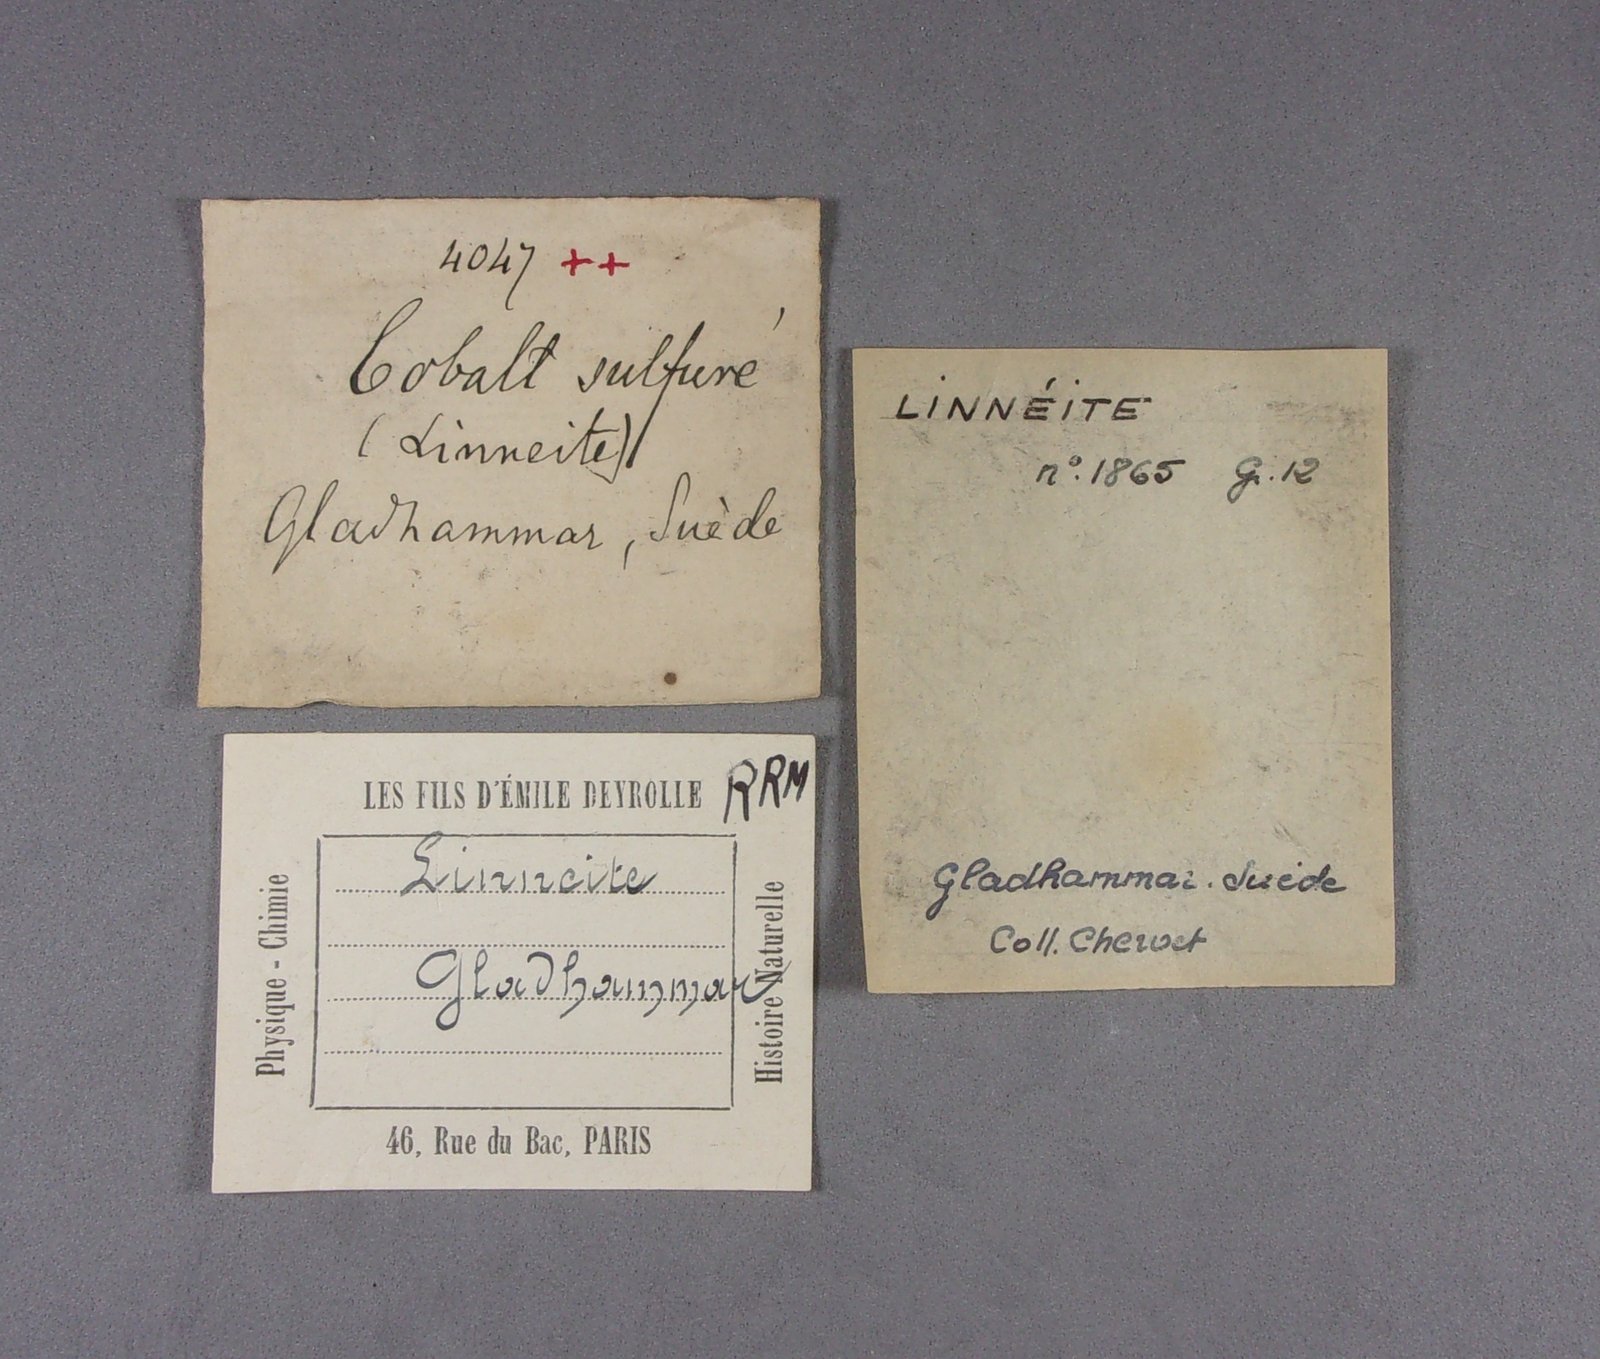 4047 ++
Cobalt sulfuré
(Linneite)
Gladhammar, Suède
LINNÉITE
n°. 1865 G. 12
Gladhammar. Suède
Coll. Chervet
LES FILS D'ÉMILE DEYROLLE
RRM
Physique - Chimie
Linneite
Gladhammar
Histoire Naturelle
46, Rue du Bac, PARIS